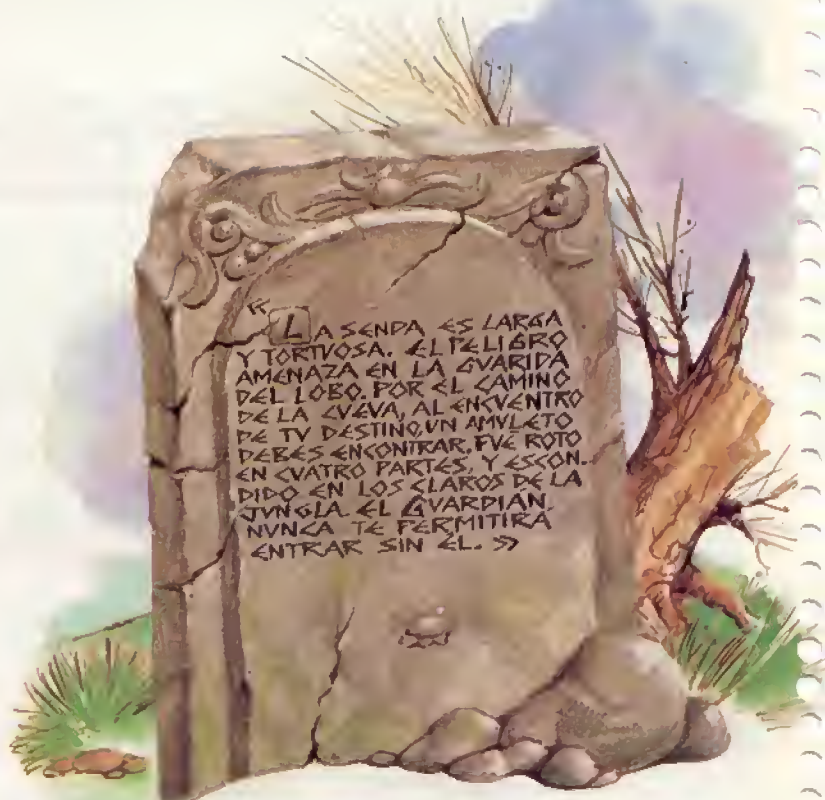 «LA SENDA ES LARGA
Y TORTVOSA. EL PELIGRO
AMENAZA EN LA GVARIDA
DEL LOBO. POR EL CAMINO
DE LA CVEVA, AL ENCVENTRO
DE TV DESTINO, UN AMVLETO
DEBES ENCONTRAR. FVÉ ROTO
EN CVATRO PARTES, Y ESCON-
DIDO EN LOS CLAROS DE LA
JVNGLA. EL GVARDIAN,
NVNCA TE PERMITIRÁ
ENTRAR SIN ÉL.»